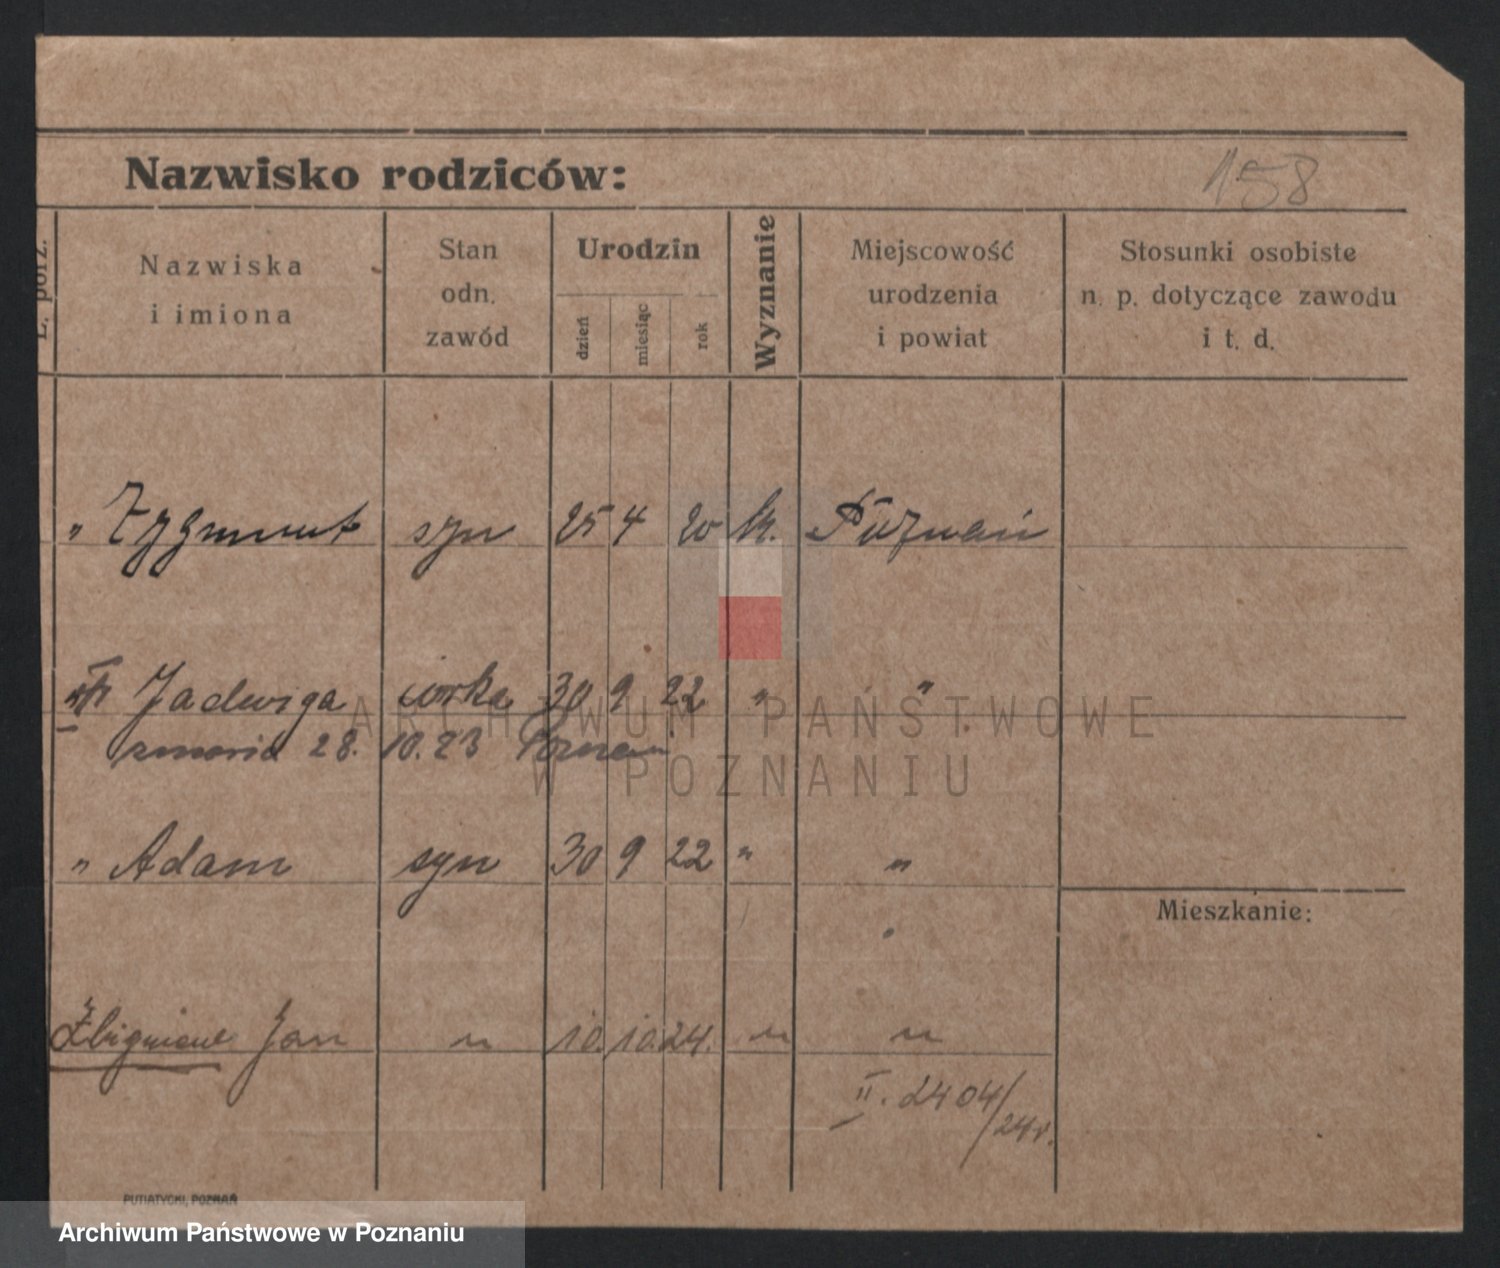 Nazwisko rodziców:
158
L. porz.
Nazwiska i imiona
Stan odn. zawód
Urodzin
dzień
miesiąc
rok
Wyznanie
Miejscowość urodzenia i powiat
Stosunki osobiste n. p. dotyczące zawodu i t. d.
" Zygmunt syn 25 4 20 k. Poznań
Jadwiga córka 30 9 22 " "
zmarła 28. 10. 23 Poznań
ARCHIWUM PAŃSTWOWE
W POZNANIU
" Adam syn 30 9 22 " "
Mieszkanie:
Zbigniew Jan " 10. 10. 24. " "
II. 2404/24r.
PUTIATYCKI, POZNAŃ
Archiwum Państwowe w Poznaniu